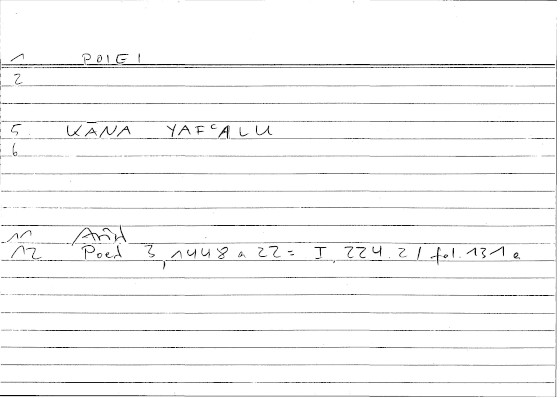 1 POIEI
2
5 KĀNA YAFʿALU
6
11 Arist
12 Poet 3, 1448 a 22 = I, 224.21 fol. 131 a